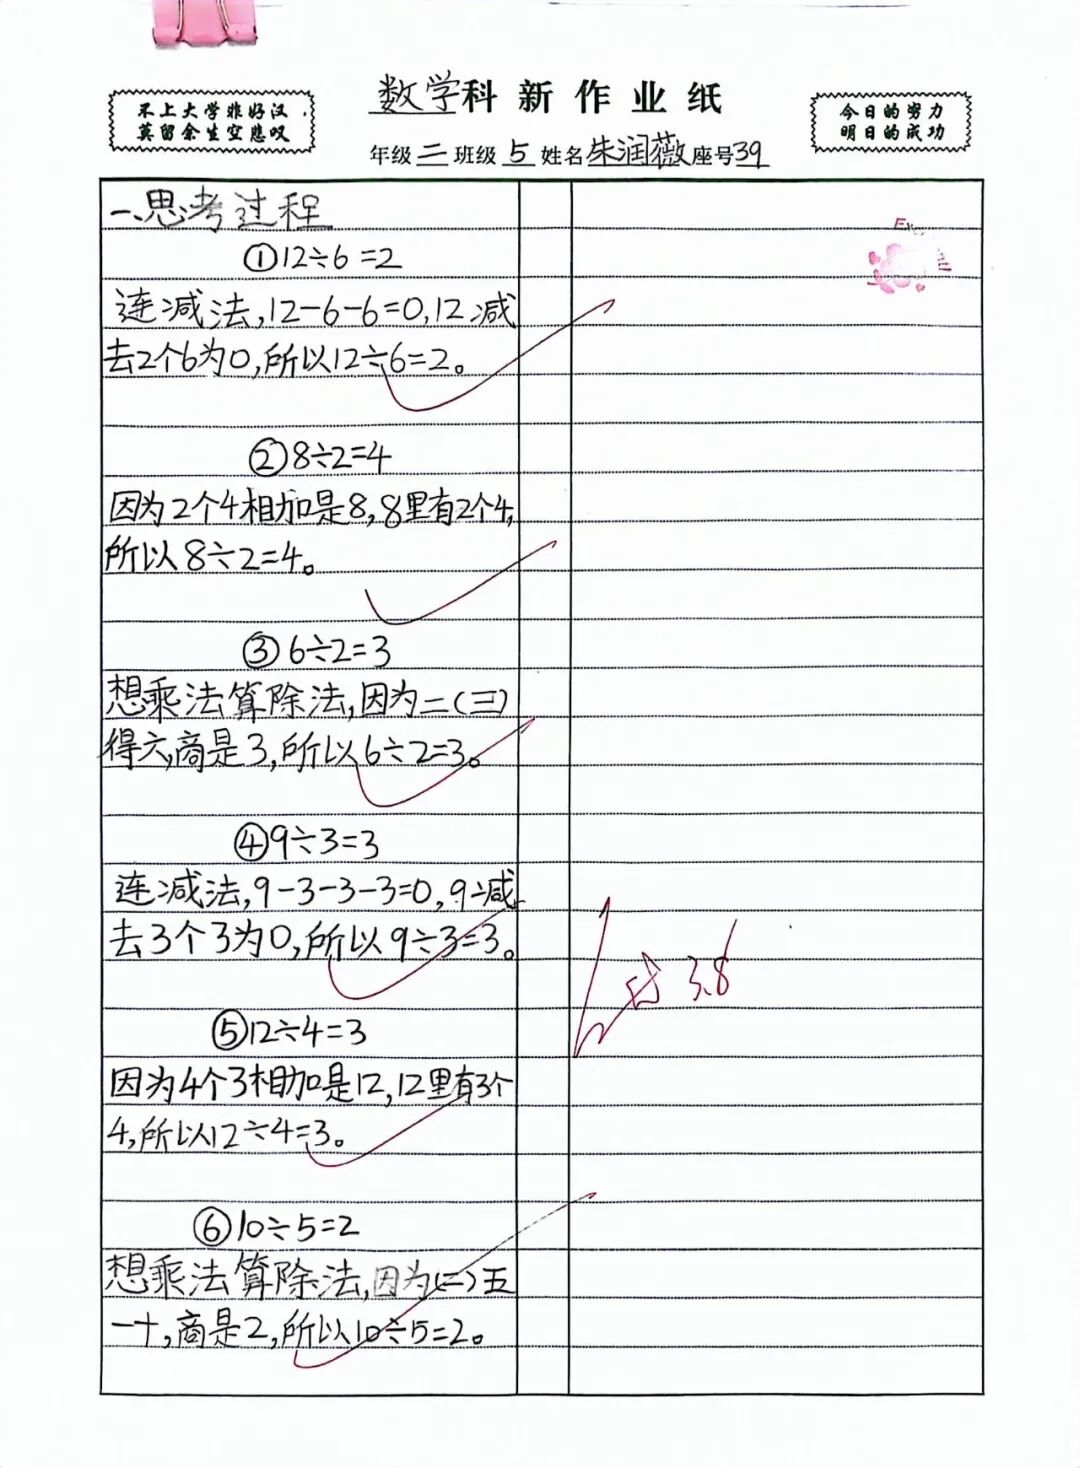 不上大学非好汉
莫留余生空悲叹
数学科新作业纸
今日的努力
明日的成功
年级二班级5姓名朱润薇座号39
一、思考过程
①12÷6=2
连减法,12-6-6=0,12减
去2个6为0,所以12÷6=2。
②8÷2=4
因为2个4相加是8,8里有2个4,
所以8÷2=4。
③6÷2=3
想乘法算除法,因为二(三)
得六,商是3,所以6÷2=3。
④9÷3=3
连减法,9-3-3-3=0,9减
去3个3为0,所以9÷3=3。
3.8
⑤12÷4=3
因为4个3相加是12,12里有3个
4,所以12÷4=3。
⑥10÷5=2
想乘法算除法,因为(二)五
一十,商是2,所以10÷5=2。